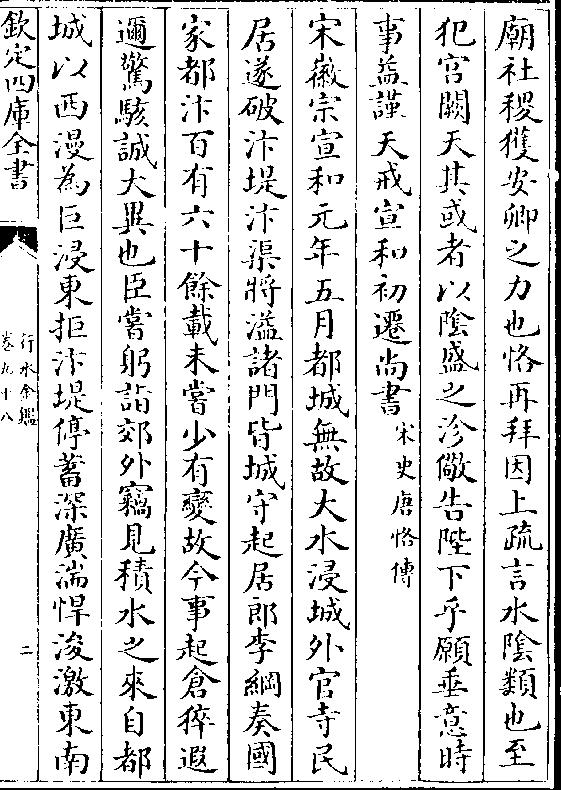 廟社稷獲安卿之力也恪再拜因上疏言水陰類也至
犯宫闕天其或者以陰盛之沴儆告陛下乎願垂意時
事益謹天戒宣和初遷尚書宋史唐恪傳
宋徽宗宣和元年五月都城無故大水浸城外官寺民
居遂破汴堤汴渠將溢諸門皆城守起居郎李綱奏國
家都汴百有六十餘載未嘗少有變故今事起倉猝遐
邇驚駭誠大異也臣嘗躬詣郊外竊見積水之來自都
城以西漫為巨浸東拒汴堤停蓄深廣湍悍浚激東南
欽定四庫全書
行水金鑑
卷九十八
二